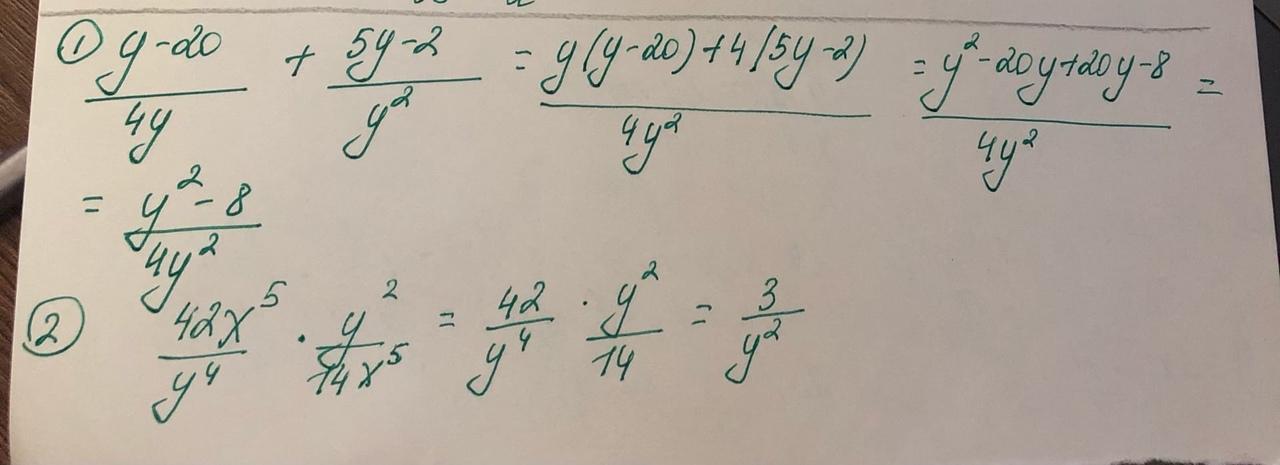 ① (y-20)/(4y) + (5y-2)/(y²) = (y(y-20)+4(5y-2))/(4y²) = (y²-20y+20y-8)/(4y²) =
= (y²-8)/(4y²)
② (42x⁵)/(y⁴) · (y²)/(14x⁵) = 42/(y⁴) · (y²)/14 = 3/(y²)